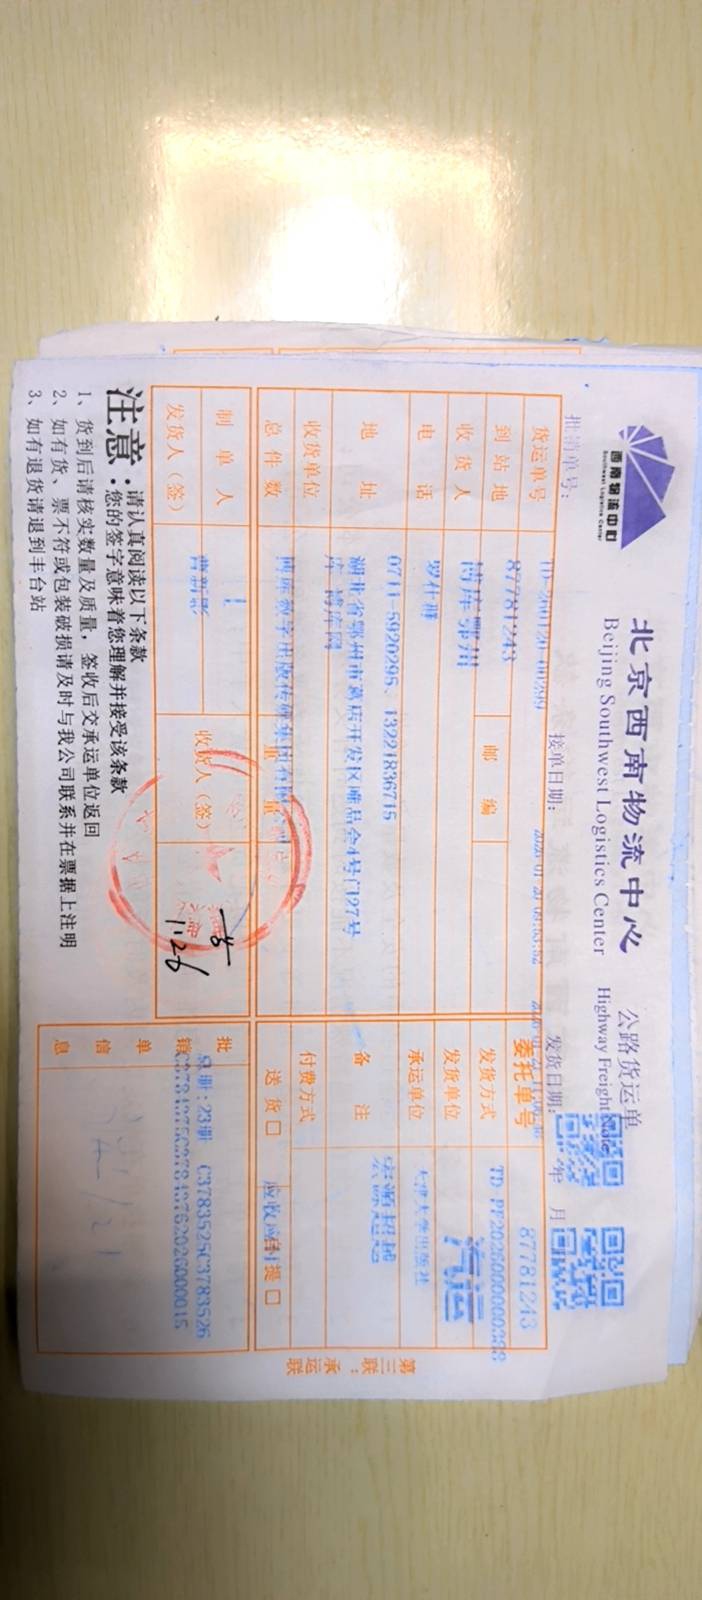 西南物流中心
Southwest Logistics Center
北京西南物流中心 公路货运单
Beijing Southwest Logistics Center Highway Freight Note
批销单号: 接单日期: 发货日期: 年 月
货运单号 委托单号 87781243
到站地 87781243 邮编 发货方式
收货人 博库鄂州 发货单位 汽运
电话 0711-5920295、13221836715 承运单位 大学出版社
地址 湖北省鄂州市葛店开发区唯品会4号门27号 备注
库 博库网
收货单位 付费方式
总件数 1 送货 □ 自提 □
制单人 曹新影 收货人(签)
发货人(签)
1.26
批销单信息
总册:23册 C3783525C3783526
注意:请认真阅读以下条款
您的签字意味着您理解并接受该条款
1、货到后请核实数量及质量,签收后交承运单位返回
2、如有货、票不符或包装破损请及时与我公司联系并在票据上注明
3、如有退货请退到丰台站
第三联:承运联